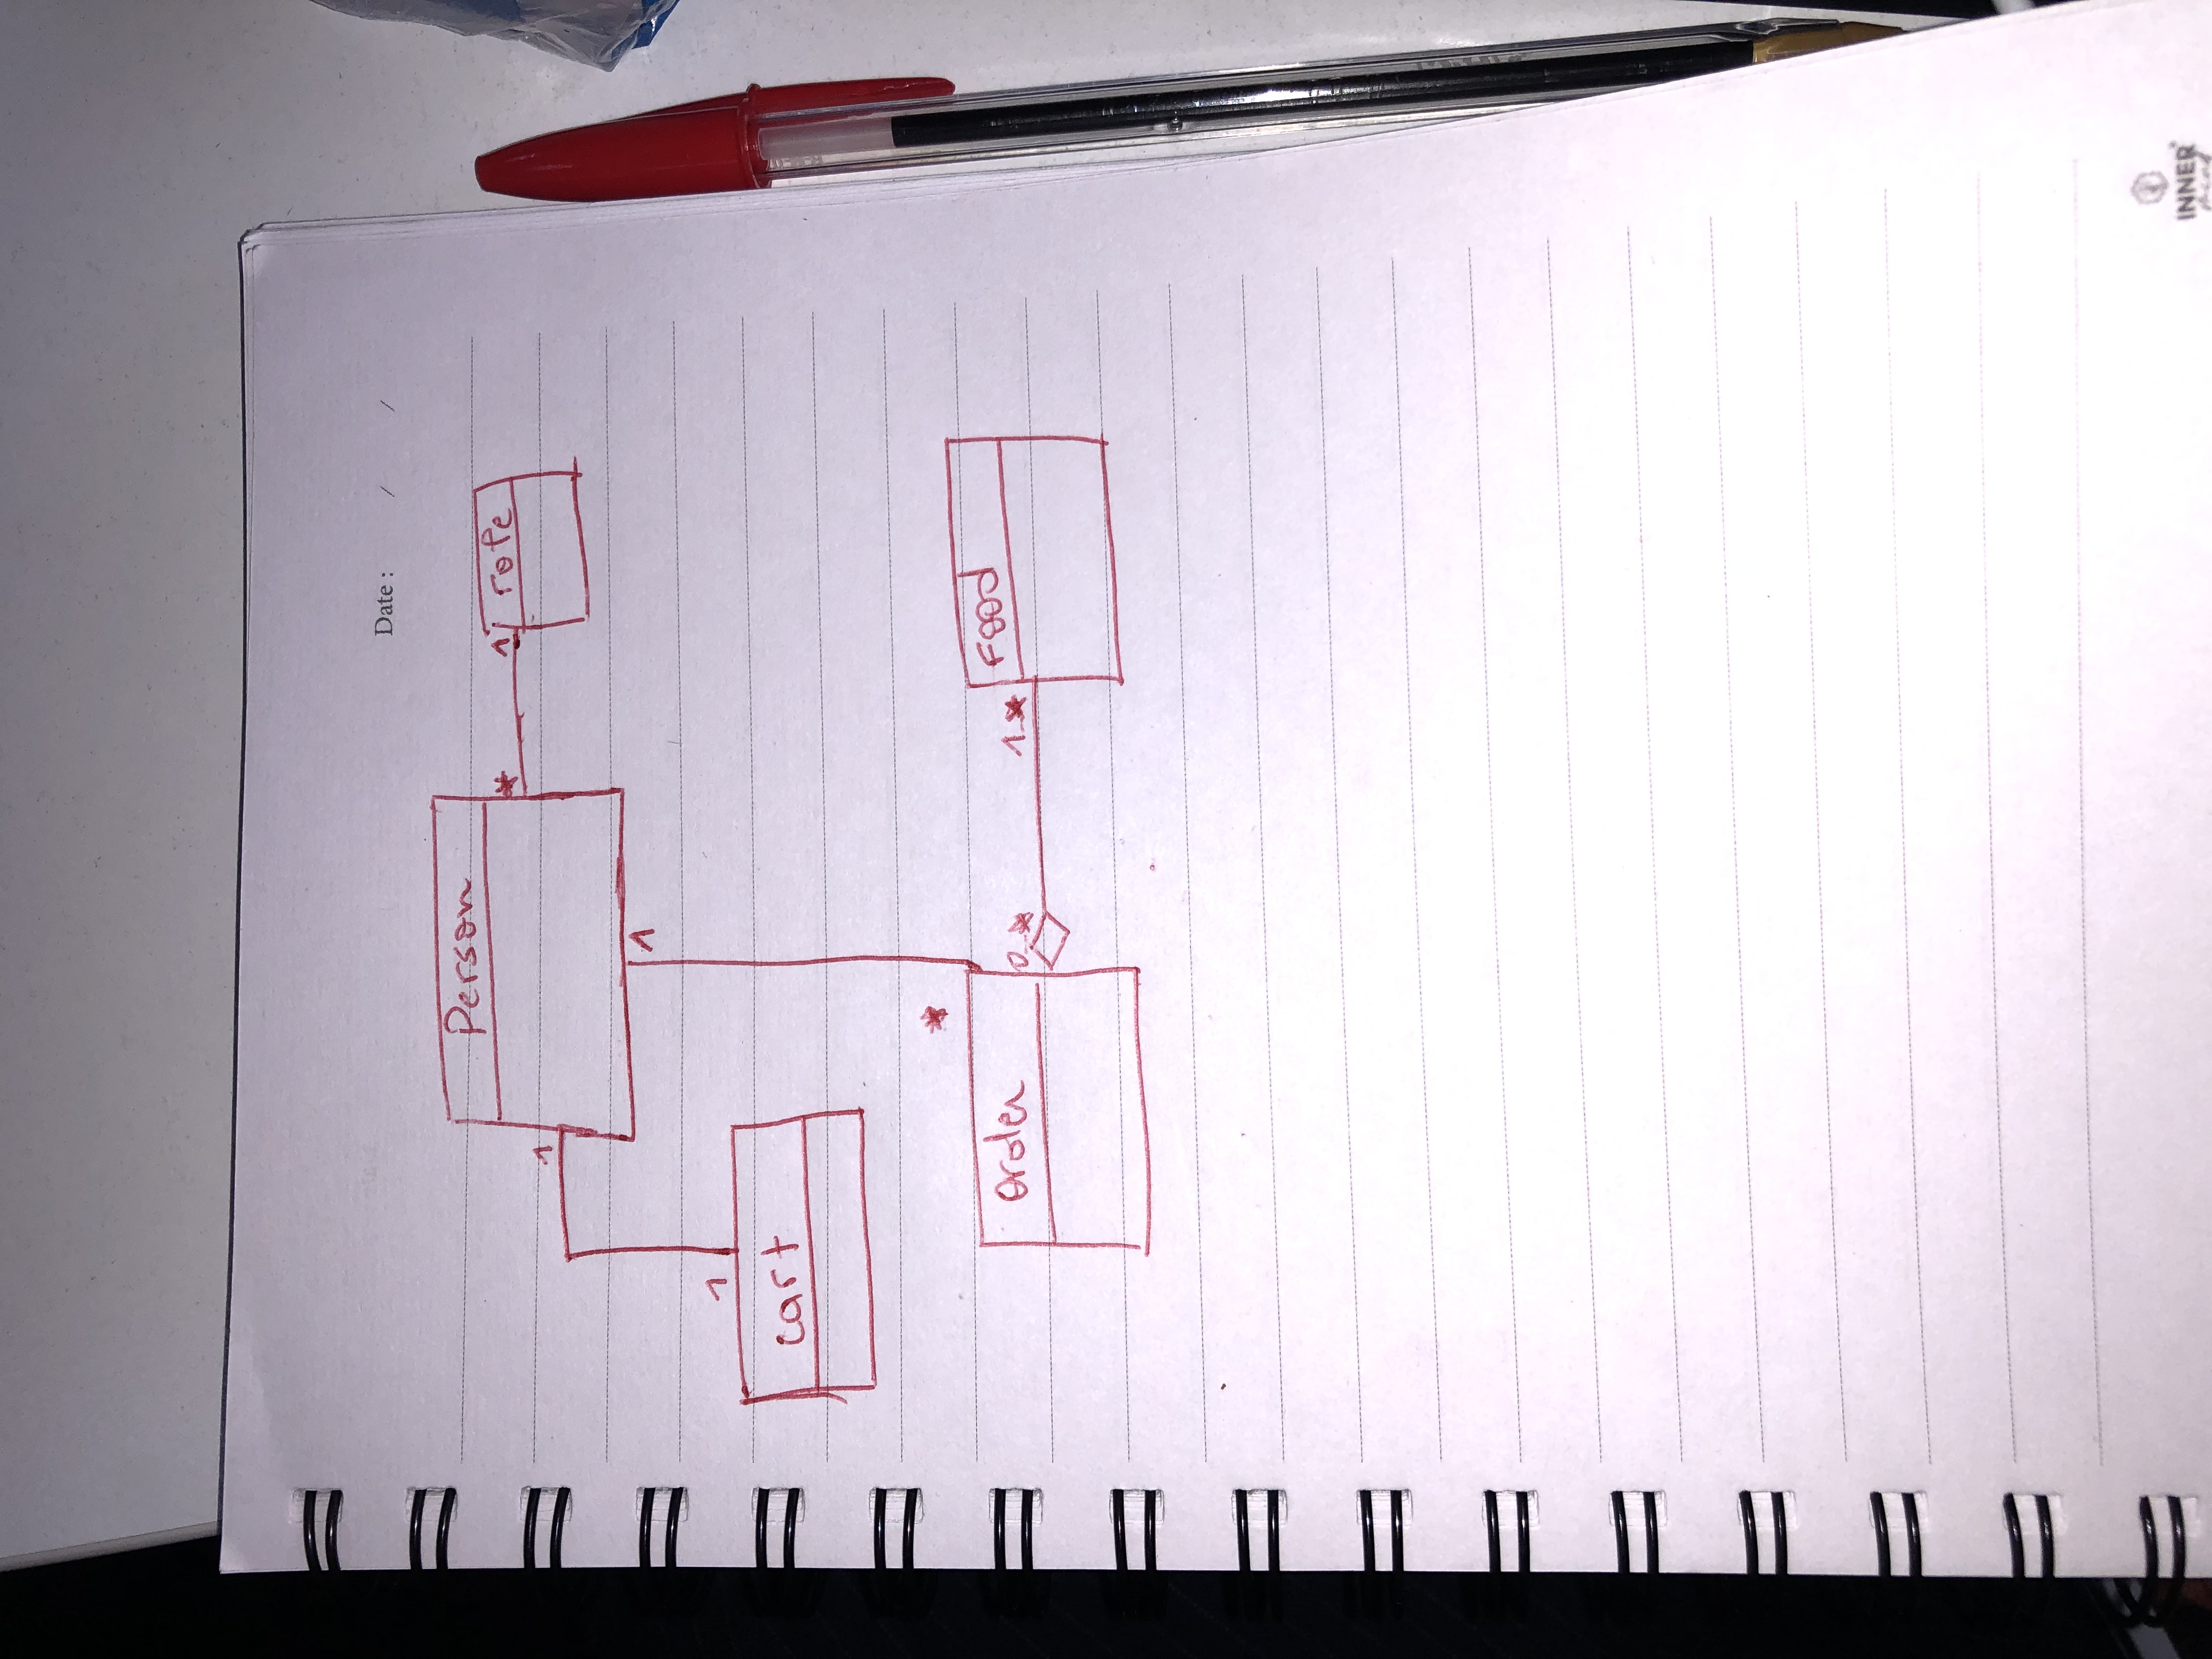 Date : / /
Person
* 1 role
1
1
1
cart
*
Order
0..* 1..* Food
INNER
mind